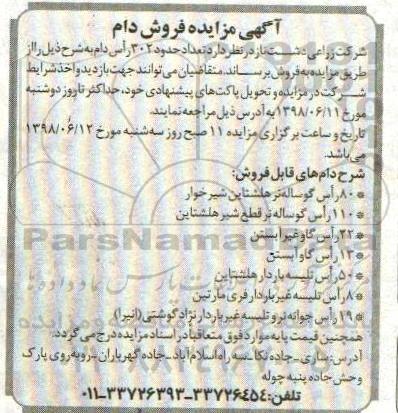 آگهی مزایده فروش دام
شرکت زراعی دشت ناز در نظر دارد تعداد حدود ۳۰۲ رأس دام به شرح ذیل را از
طریق مزایده به فروش برساند. متقاضیان می توانند جهت بازدید و اخذ شرایط
شرکت در مزایده و تحویل پاکت های پیشنهادی خود، حداکثر تا روز دوشنبه
مورخ ۱۳۹۸/۰۶/۱۱ به آدرس ذیل مراجعه نمایند.
تاریخ و ساعت برگزاری مزایده ۱۱ صبح روز سه شنبه مورخ ۱۳۹۸/۰۶/۱۲
می باشد.
شرح دام های قابل فروش:
* ۸۰ رأس گوساله نر هلشتاین شیرخوار
* ۱۱۰ رأس گوساله نر قطع شیر هلشتاین
* ۲۲ رأس گاو غیر آبستن
* ۱۳ رأس گاو آبستن
* ۵۰ رأس تلیسه باردار هلشتاین
* ۸ رأس تلیسه غیر باردار فری مارتین
* ۱۹ رأس جوانه نر و تلیسه غیر باردار نژاد گوشتی (انبرا)
همچنین قیمت پایه موارد فوق متعاقباً در اسناد مزایده درج می گردد.
آدرس: ساری - جاده نکا - سه راه اسلام آباد - جاده گهرباران - روبه روی پارک
وحش جاده پنبه چوله
تلفن: ۳۳۷۲۶۴۵۴-۳۳۷۲۶۳۹۳-۰۱۱
ParsNamad